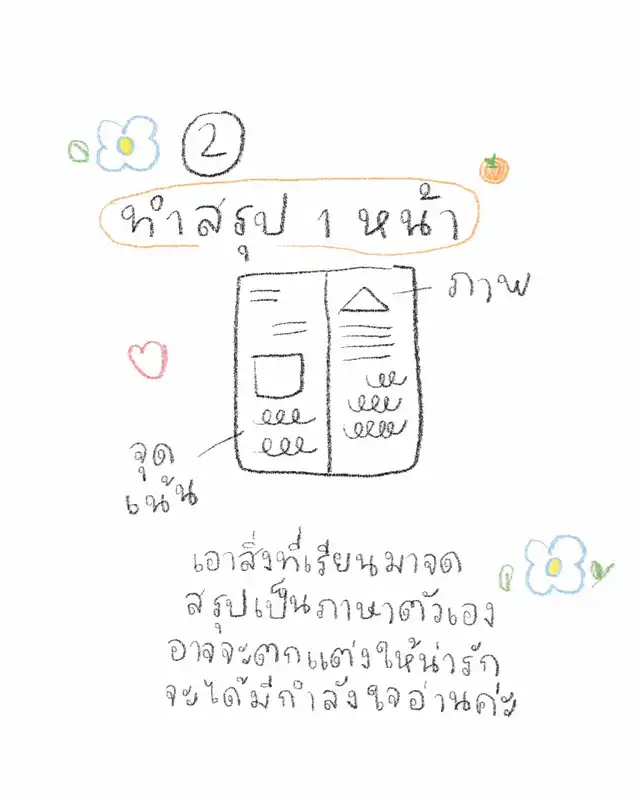 2
ทำสรุป 1 หน้า
ภาพ
จุด
เน้น
เอาสิ่งที่เรียนมาจด
สรุปเป็นภาษาตัวเอง
อาจจะตกแต่งให้น่ารัก
จะได้มีกำลังใจอ่านค่ะ